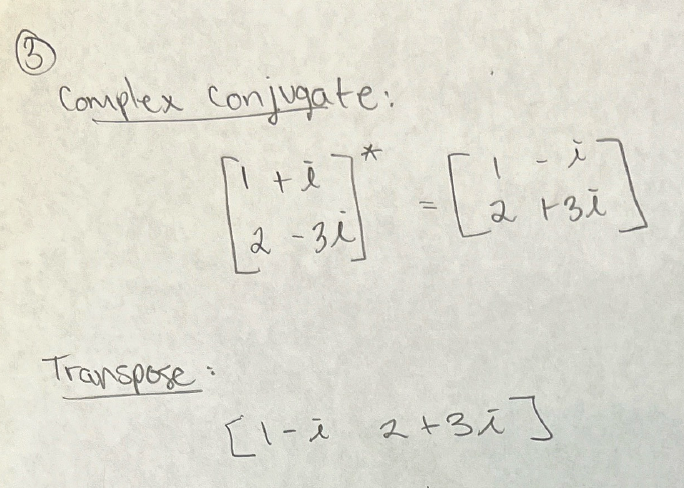 ③
Complex Conjugate:
[1 + i
2 - 3i]* = [1 - i
2 + 3i]
Transpose:
[1-i 2+3i]